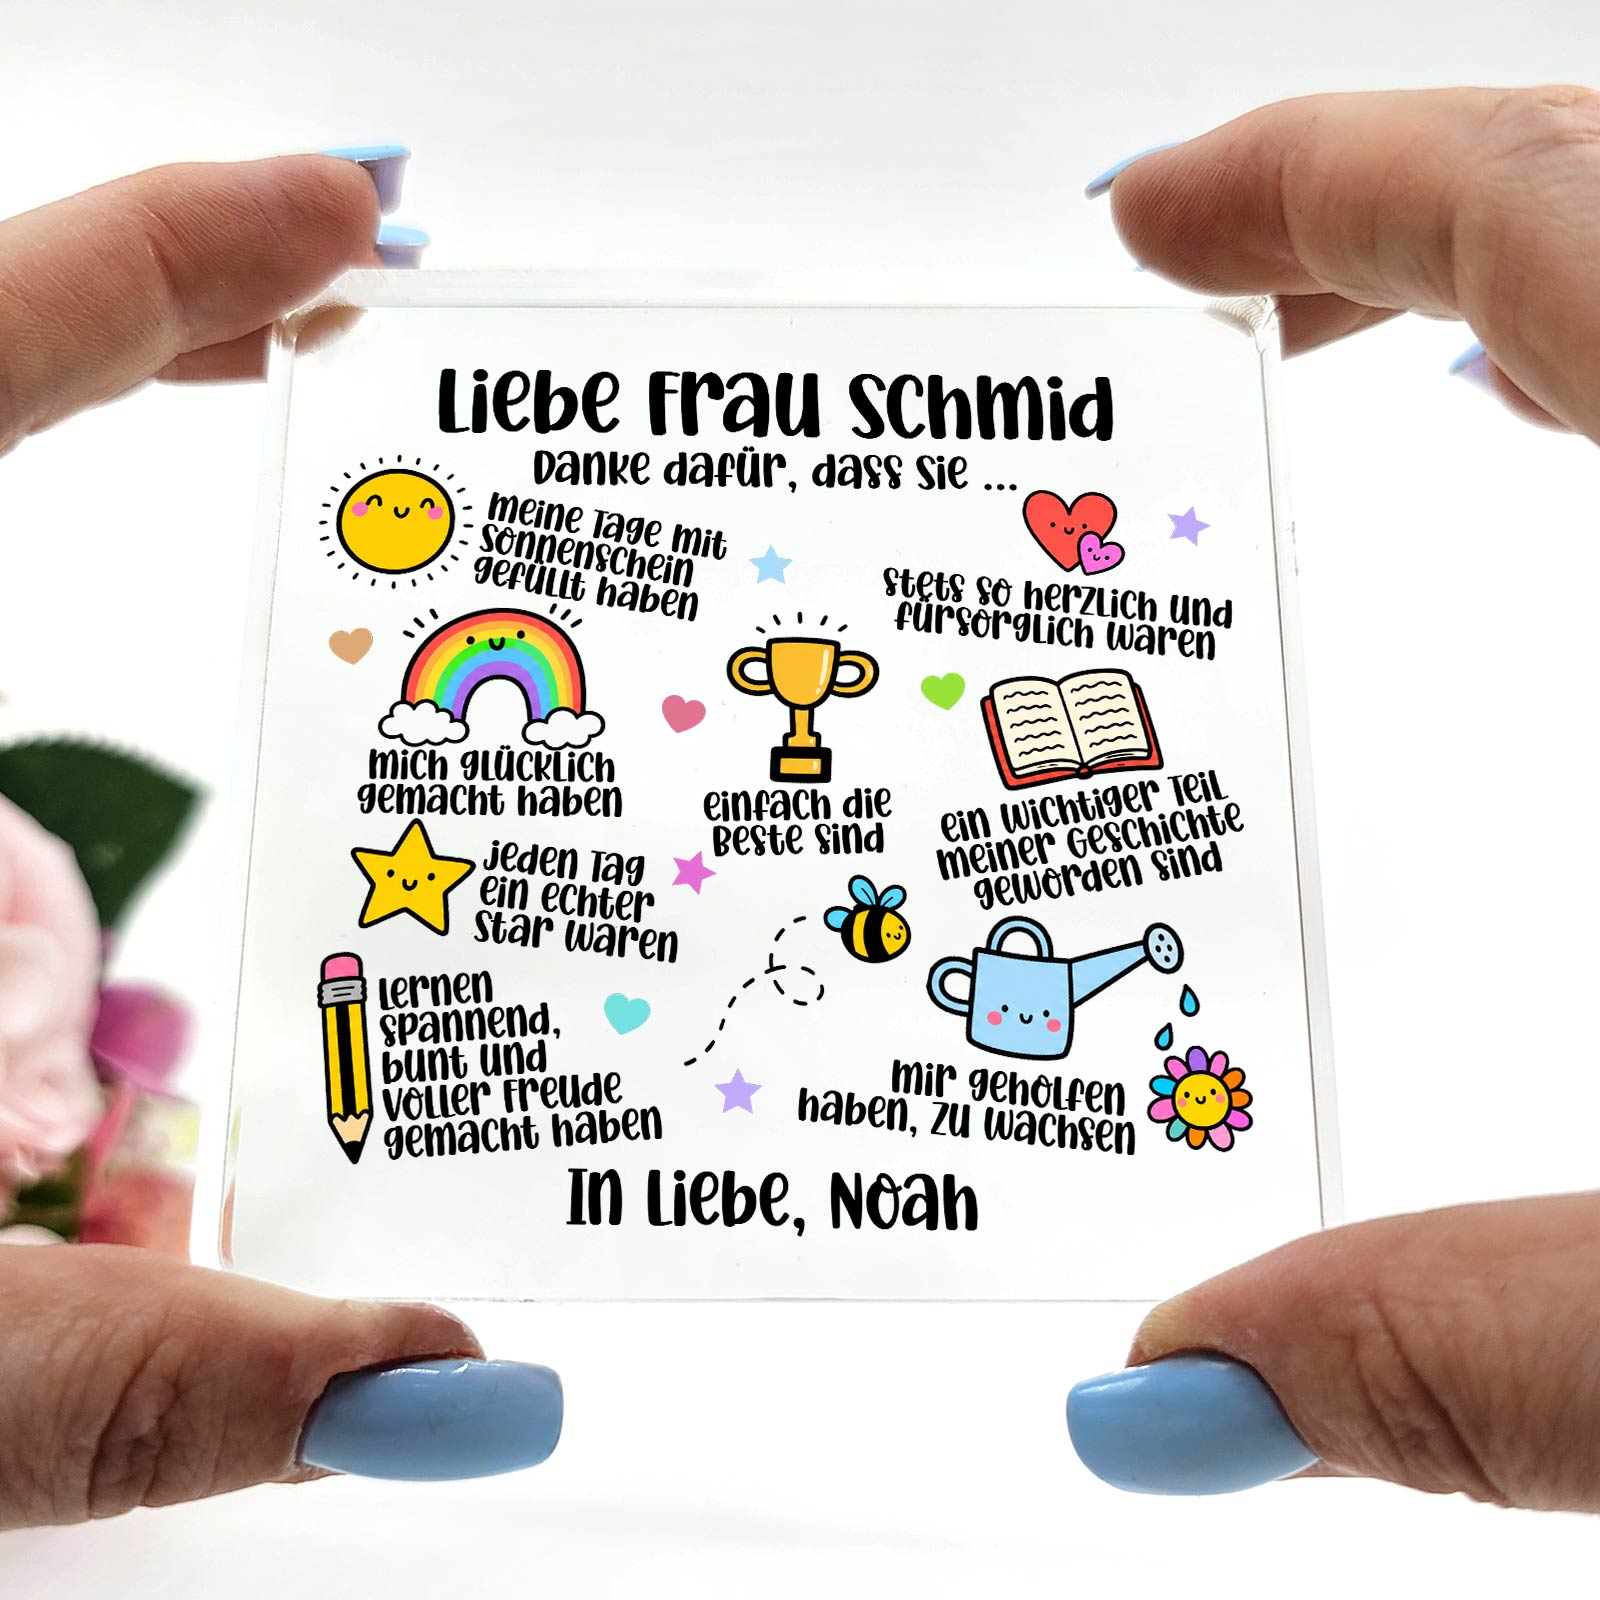 Liebe Frau Schmid
Danke dafür, dass Sie ...
meine Tage mit
Sonnenschein
gefüllt haben
stets so herzlich und
fürsorglich waren
mich glücklich
gemacht haben
einfach die
Beste sind
ein wichtiger Teil
meiner Geschichte
geworden sind
jeden Tag
ein echter
Star waren
Lernen
spannend,
bunt und
voller Freude
gemacht haben
mir geholfen
haben, zu wachsen
In Liebe, Noah